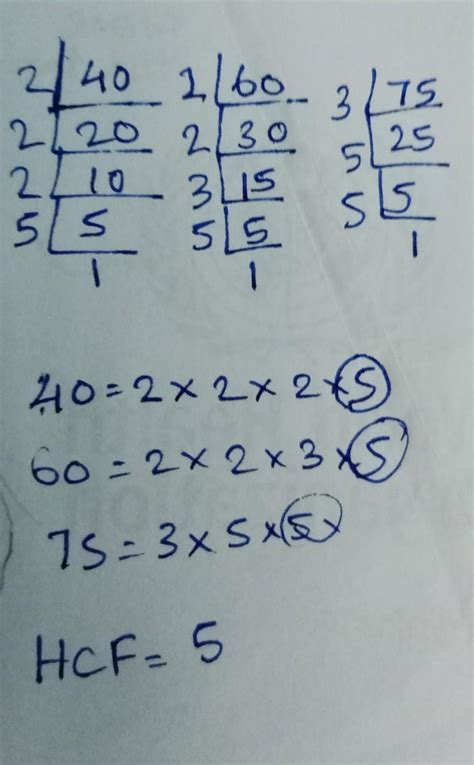 2 40 2 60 3 75
2 20 2 30 5 25
2 10 3 15 5 5
5 5 5 5 1
1 1
40 = 2 × 2 × 2 × 5
60 = 2 × 2 × 3 × 5
75 = 3 × 5 × 5 ×
HCF = 5